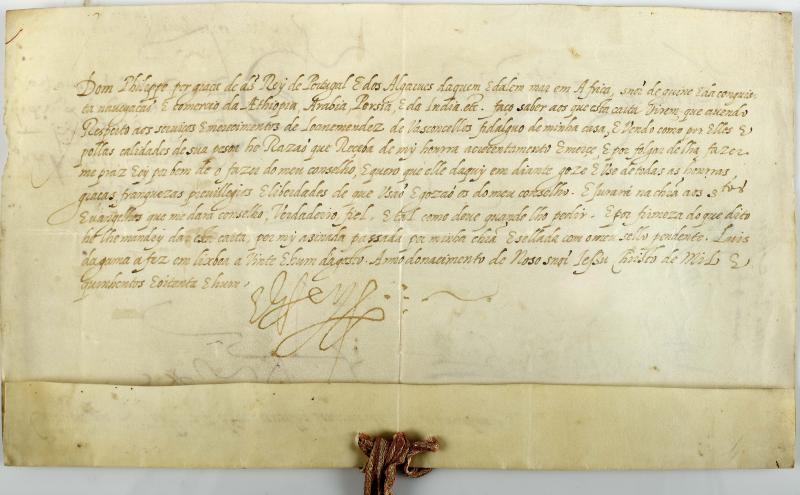 Dom Philippe por graça de ds Rey de Portugal E dos Algarues daquem E dalem mar em Africa, snõr de Guine E da conquis-
ta nauegaçaõ E comercio da Æthiopia, Arabia Persia, E da India. etc. faço saber aos que esta carta virem, que auendo
Respeito aos seruiços E merecimentos de Joane mendez de Vasconcellos fidalguo de minha casa, E vendo como por Elles E
pollas calidades de sua pesoa he Razaõ que Receba de my honrra acrecentamento E merçe, E por folgar de lha fazer
me praz Ey por bem de o fazer do meu conselho, E quero que elle daquy em diante goze E Use de todas as honrras
graças franquezas preuillegios E liberdades de que Usaõ E gozaõ os do meu conselho. E Jurará na chrã aos stos
Euangelhos que me dará conselho, Verdadeiro, fiel. E tal como deue quando lho pedir. E por firmeza do que dito
he lhe mandey dar esta carta, por my asinada passada por minha chrã E sellada com o meu sello pendente. Luis
da gama a fez em lixboa a Vinte E hum dagosto. Anno do nacimento de Noso snõr Jesu Christo de Mil E
quinhentos E oitenta E hum.